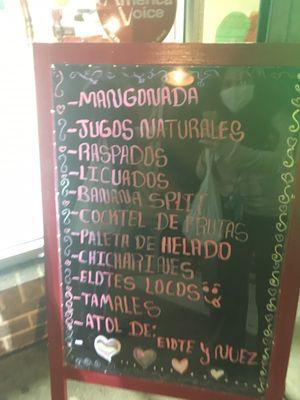 America
Voice
-MANGONADA
-JUGOS NATURALES
-RASPADOS
-LICUADOS
BANANA SPLIT
-COCKTEL DE FRUTAS
-PALETA DE HELADO
-CHICHARINES
-ELOTES LOCOS
-TAMALES
-ATOL DE:
ELOTE Y NUEZ